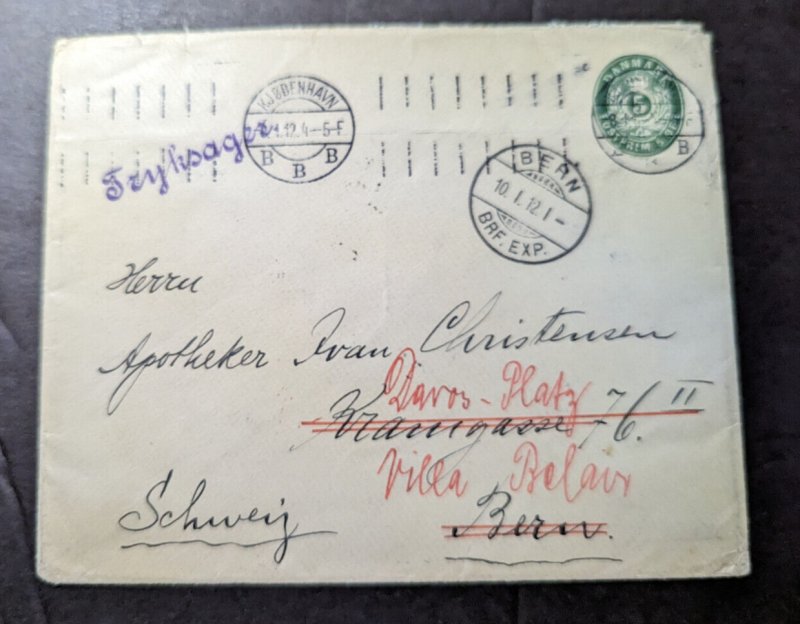 KJØBENHAVN
1.12.4-5-F
B B B
DANMARK
5
B
Tryksager
BERN
10.I.12.I-
BRF. EXP.
Herrn
Apotheker Ivan Christensen
Davos-Platz
Kramgasse 76. II
Villa Belair
Schweiz
Bern.